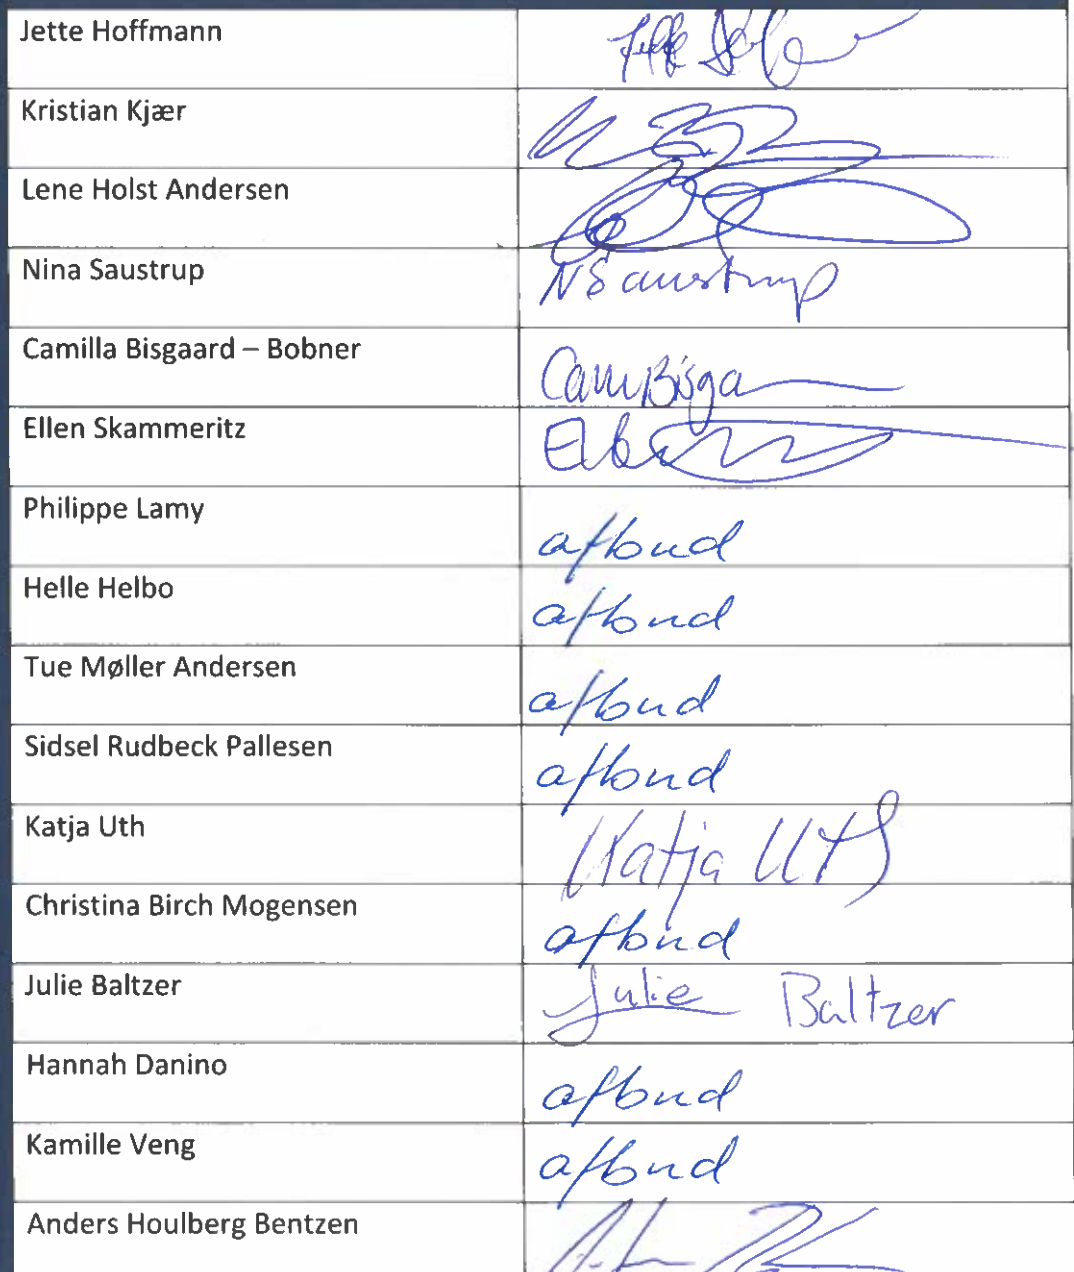 Jette Hoffmann
Kristian Kjær
Lene Holst Andersen
Nina Saustrup NSaustrup
Camilla Bisgaard – Bobner CamBisga
Ellen Skammeritz
Philippe Lamy afbud
Helle Helbo afbud
Tue Møller Andersen afbud
Sidsel Rudbeck Pallesen afbud
Katja Uth Katja Uth
Christina Birch Mogensen afbud
Julie Baltzer Julie Baltzer
Hannah Danino afbud
Kamille Veng afbud
Anders Houlberg Bentzen